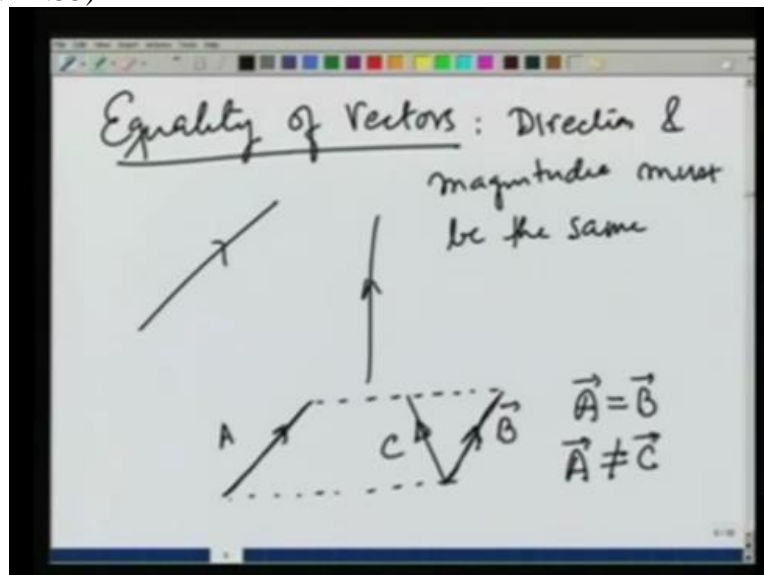 Equality of Vectors : Direction &
magnitude must
be the same
A
C
B⃗
A⃗ = B⃗
A⃗ ≠ C⃗